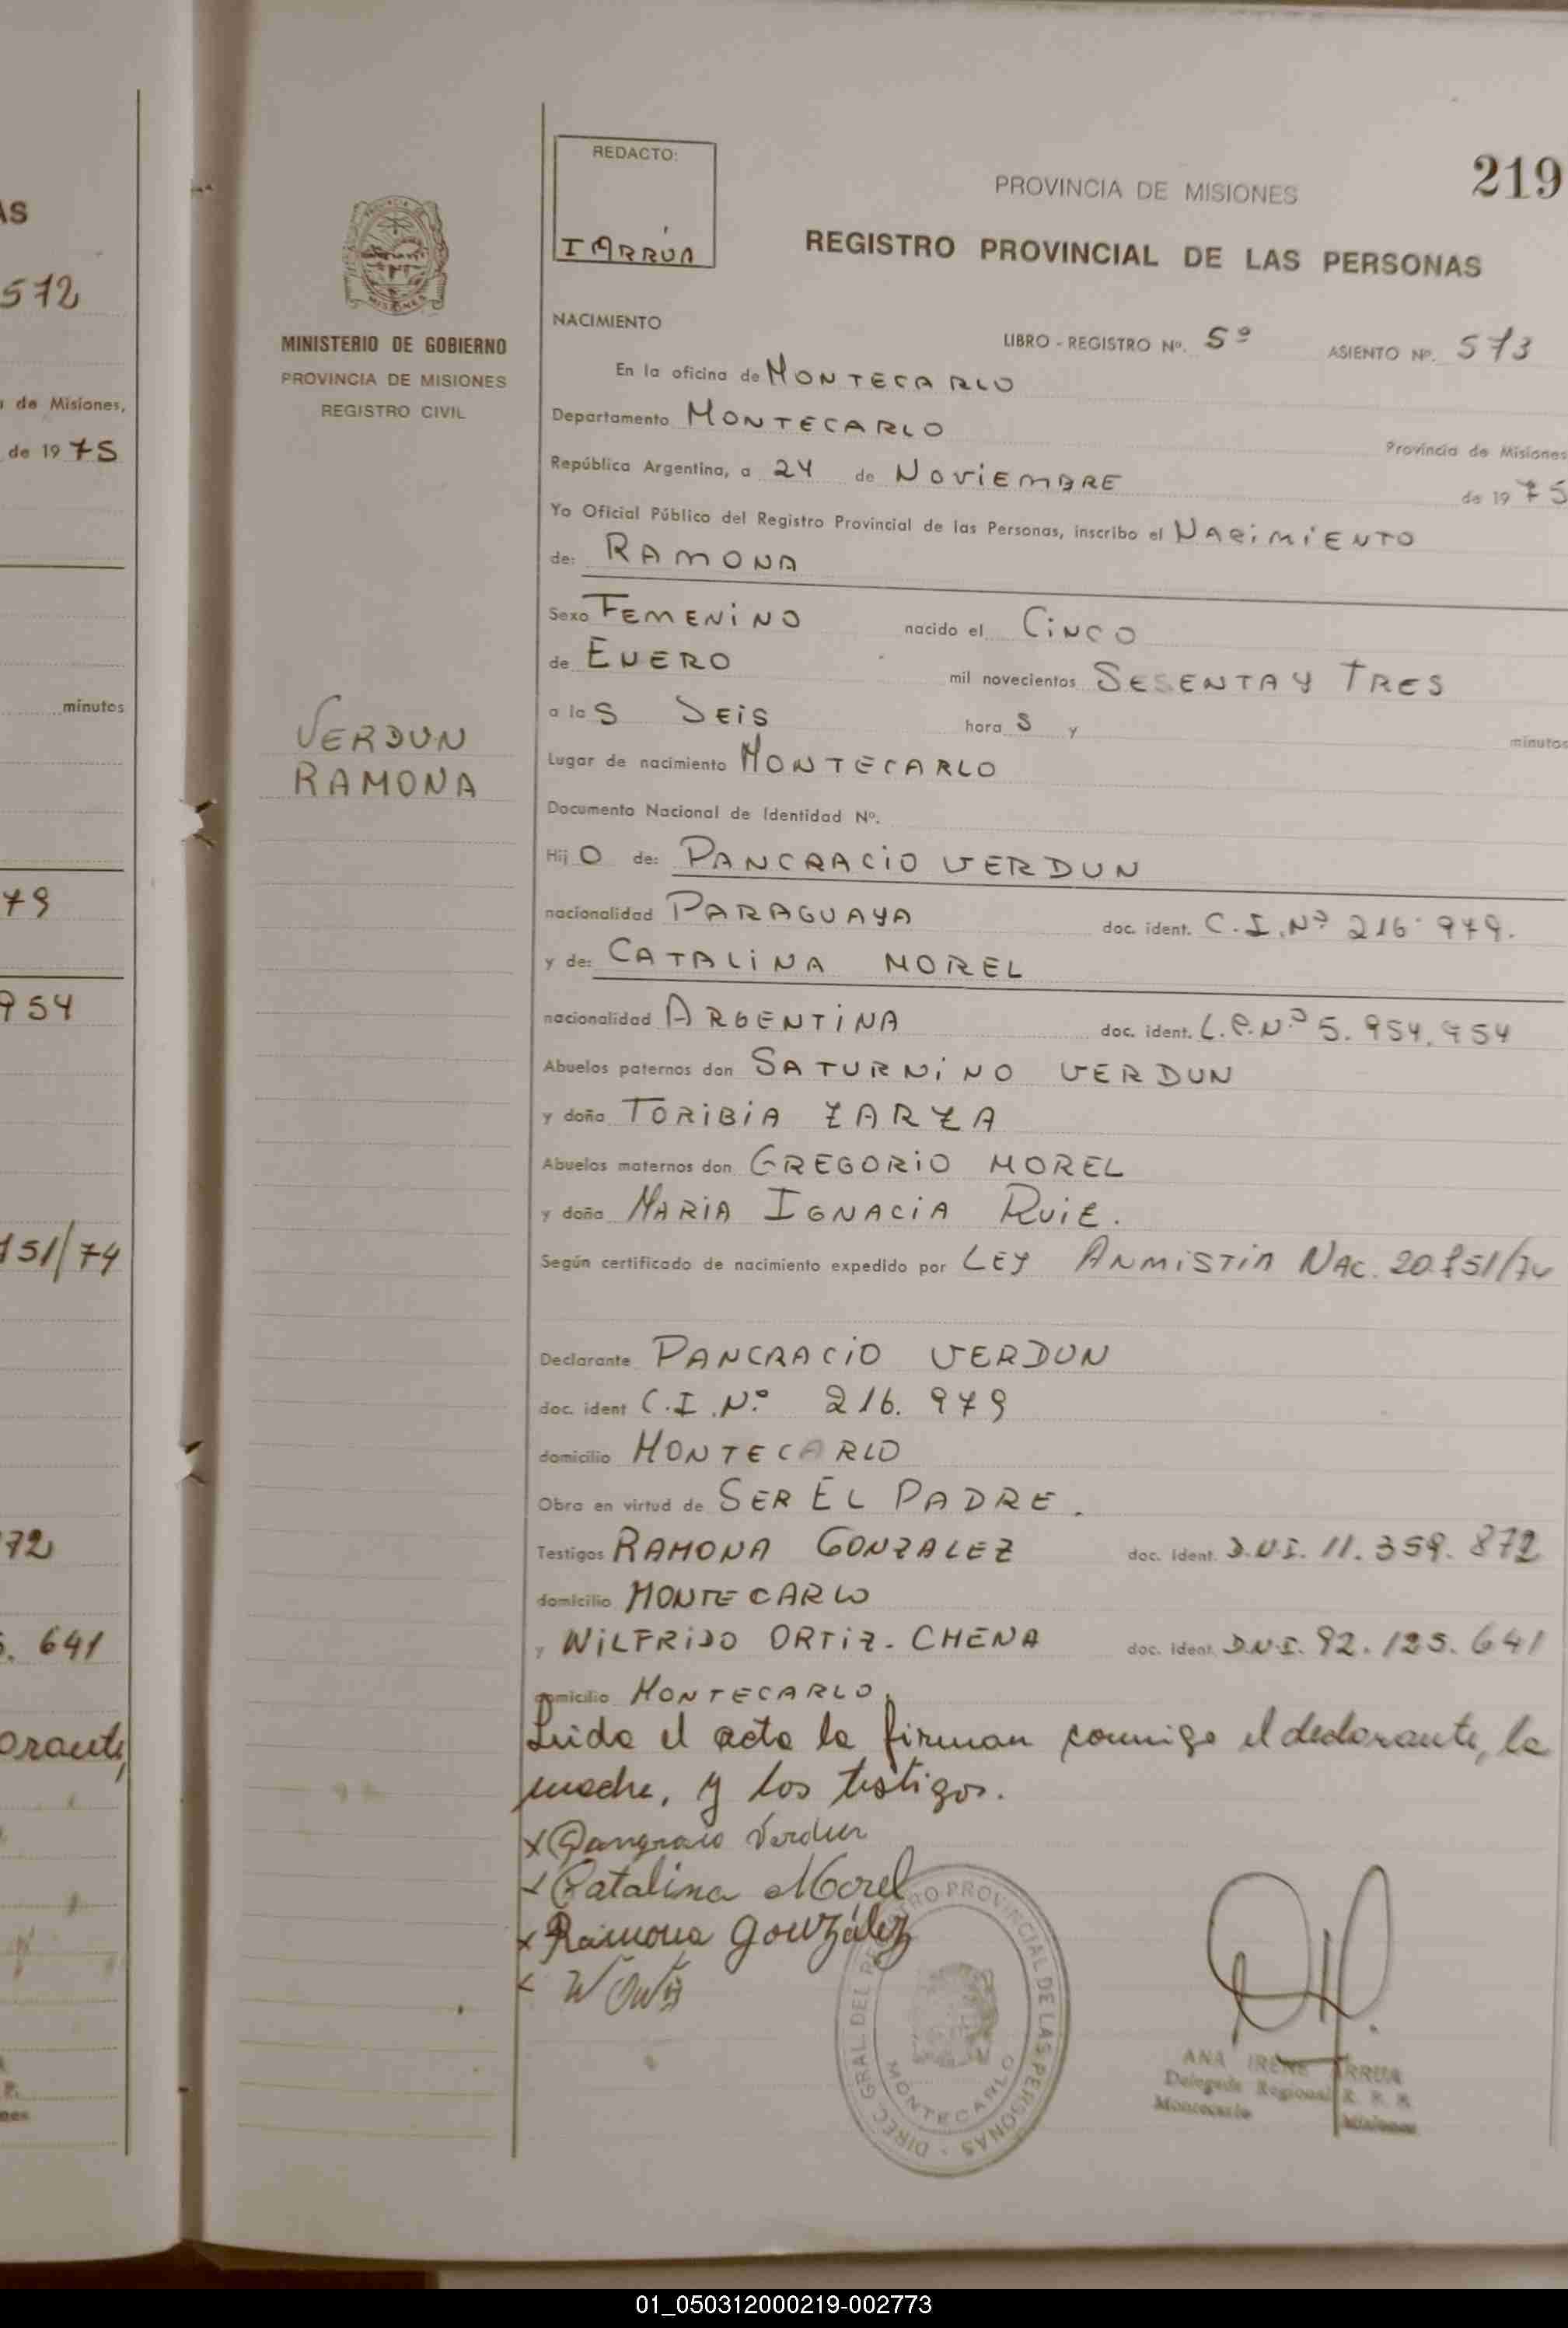 AS
572
a de Misiones,
de 19 75
minutos
79
954
751/74
72
5. 641
orante,
MINISTERIO DE GOBIERNO
PROVINCIA DE MISIONES
REGISTRO CIVIL
VERDUN
RAMONA
REDACTO:
I ARRÚA
PROVINCIA DE MISIONES
219
REGISTRO PROVINCIAL DE LAS PERSONAS
NACIMIENTO
LIBRO - REGISTRO Nº. 5º ASIENTO Nº. 573
En la oficina de MONTECARLO
Departamento MONTECARLO Provincia de Misiones
República Argentina, a 24 de NOVIEMBRE de 19 75
Yo Oficial Público del Registro Provincial de las Personas, inscribo el NACIMIENTO
de: RAMONA
Sexo FEMENINO nacido el CINCO
de ENERO mil novecientos SESENTA Y TRES
a la S SEIS hora S y minutos
Lugar de nacimiento MONTECARLO
Documento Nacional de Identidad Nº.
Hij O de: PANCRACIO VERDUN
nacionalidad PARAGUAYA doc. ident. C.I. Nº 216.979.
y de: CATALINA MOREL
nacionalidad ARGENTINA doc. ident. L.C. Nº 5.954.954
Abuelos paternos don SATURNINO VERDUN
y doña TORIBIA ZARZA
Abuelos maternos don GREGORIO MOREL
y doña MARIA IGNACIA RUIZ.
Según certificado de nacimiento expedido por LEY ANMISTIA NAC. 20.751/74
Declarante PANCRACIO VERDUN
doc. ident C.I. Nº 216.979
domicilio MONTECARLO
Obra en virtud de SER EL PADRE.
Testigos RAMONA GONZALEZ doc. ident. D.N.I. 11.359.872
domicilio MONTECARLO
y WILFRIDO ORTIZ-CHENA doc. ident. D.N.I. 92.125.641
domicilio MONTECARLO.
Leida el acta la firman conmigo el declarante, la
madre, y los testigos.
x Pangracio Verdun
x Catalina Morel
x Ramona González
x W Ortiz
DIREC. GRAL DEL REGISTRO PROVINCIAL DE LAS PERSONAS
MONTECARLO
ANA IRENE ARRUA
Delegada Regional R. P. P.
Montecarlo Misiones
01_050312000219-002773